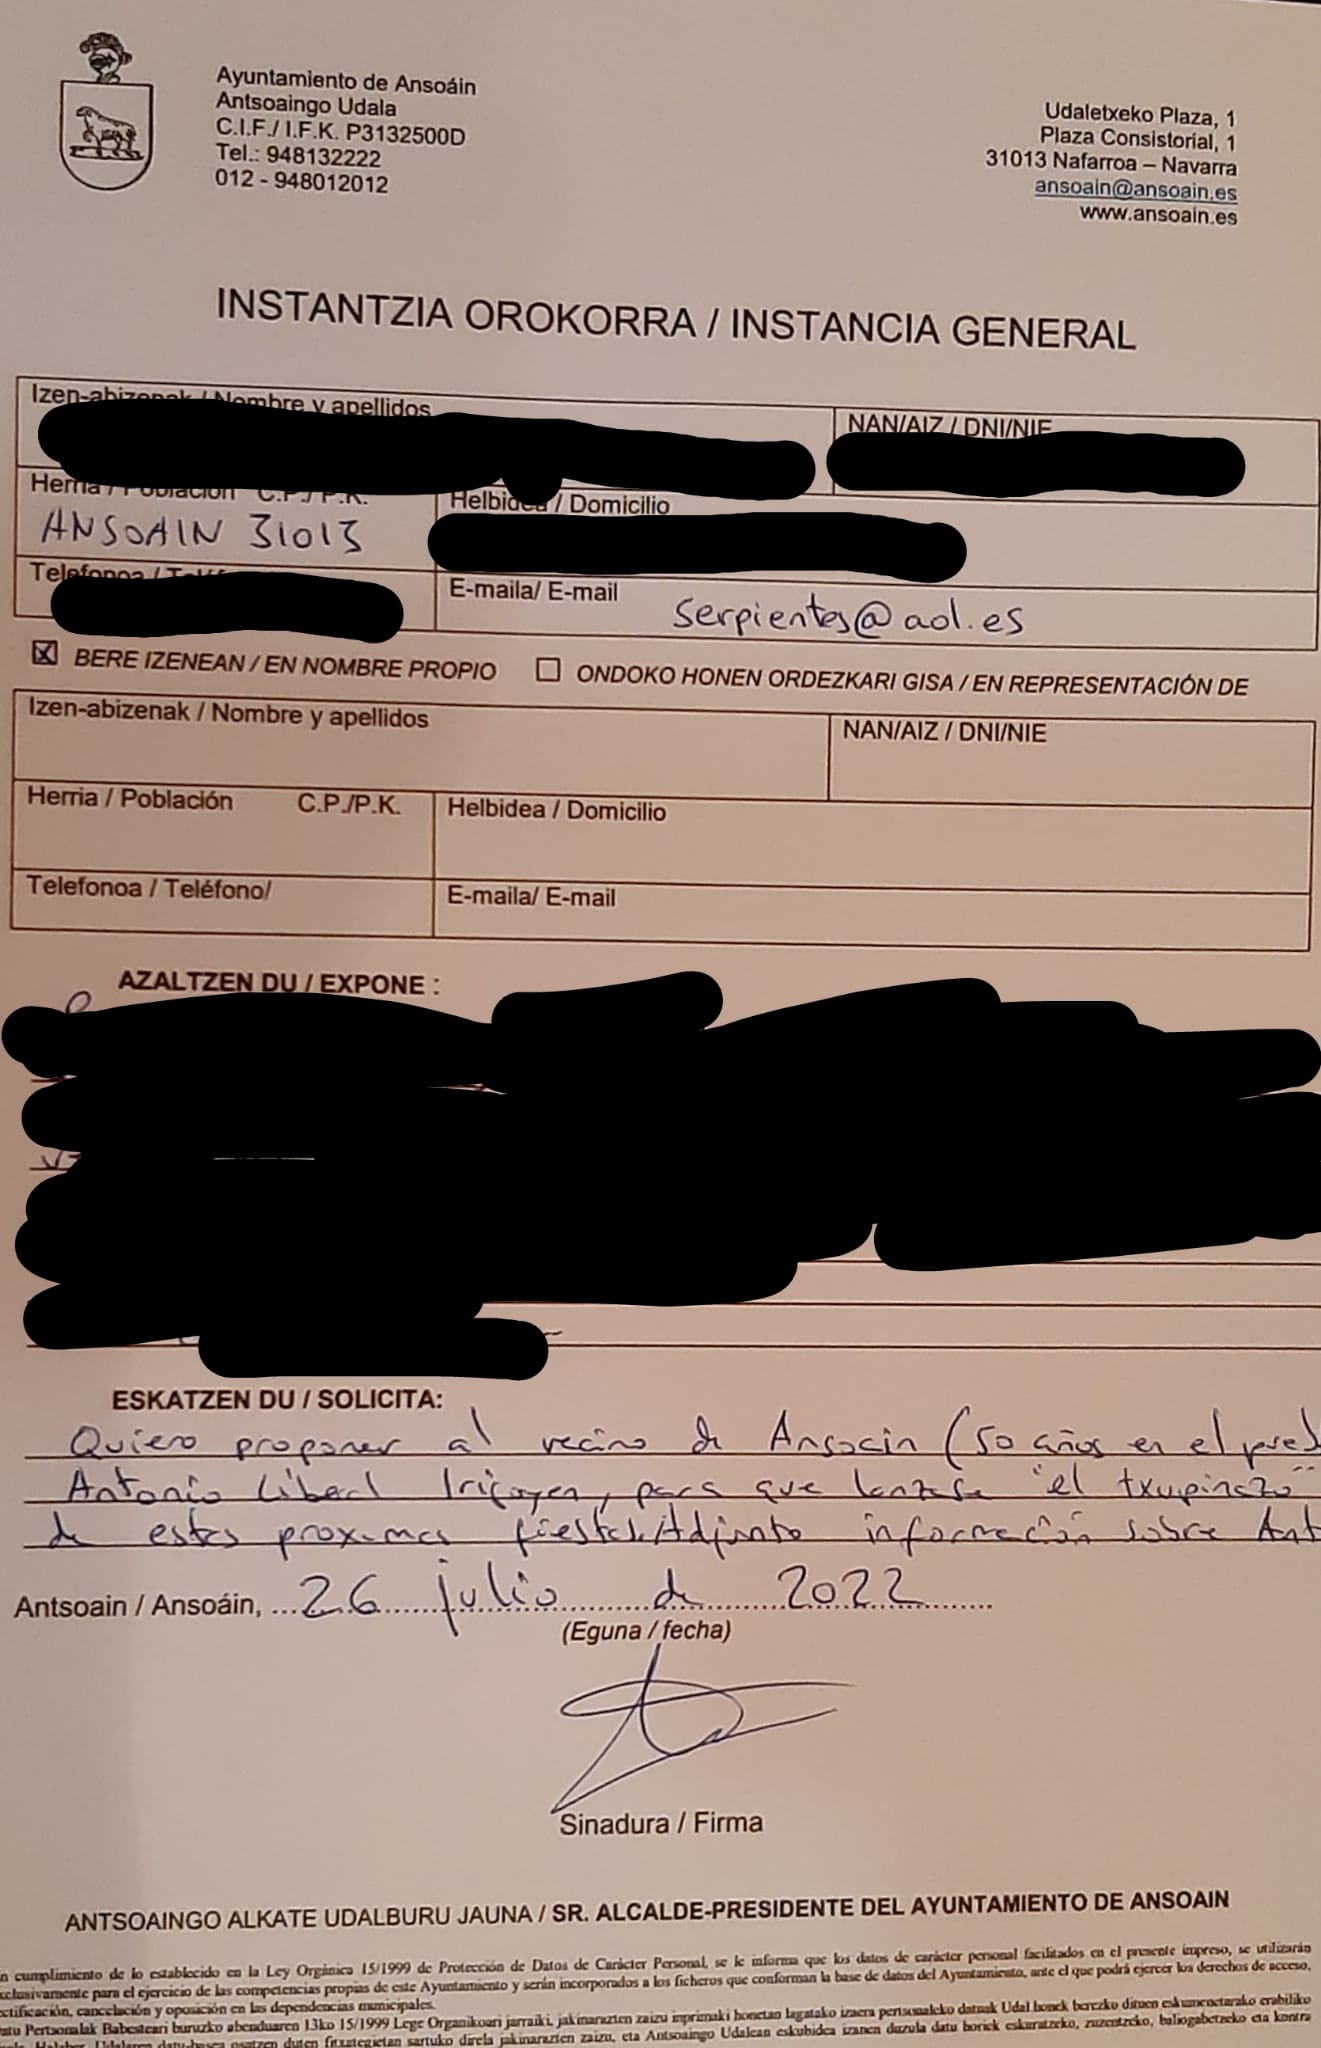 Ayuntamiento de Ansoáin
Antsoaingo Udala
C.I.F./ I.F.K. P3132500D
Tel.: 948132222
012 - 948012012
Udaletxeko Plaza, 1
Plaza Consistorial, 1
31013 Nafarroa – Navarra
ansoain@ansoain.es
www.ansoain.es
INSTANTZIA OROKORRA / INSTANCIA GENERAL
Izen-abizenak / Nombre y apellidos
NAN/AIZ / DNI/NIE
Herria / Población C.P./ P.K.
Helbidea / Domicilio
ANSOAIN 31013
Telefonoa /
E-maila/ E-mail
serpientes@aol.es
X BERE IZENEAN / EN NOMBRE PROPIO ☐ ONDOKO HONEN ORDEZKARI GISA / EN REPRESENTACIÓN DE
Izen-abizenak / Nombre y apellidos
NAN/AIZ / DNI/NIE
Herria / Población C.P./P.K.
Helbidea / Domicilio
Telefonoa / Teléfono/
E-maila/ E-mail
AZALTZEN DU / EXPONE :
ESKATZEN DU / SOLICITA:
Quiero proponer al vecino de Ansoain (50 años en el
Antonio Libeal Irigoyen, para que lanzase "el txupinazo"
de estas proximas fiestas. Adjunto información sobre Ant
Antsoain / Ansoáin, 26 julio de 2022
(Eguna / fecha)
Sinadura / Firma
ANTSOAINGO ALKATE UDALBURU JAUNA / SR. ALCALDE-PRESIDENTE DEL AYUNTAMIENTO DE ANSOAIN
n cumplimiento de lo establecido en la Ley Orgánica 15/1999 de Protección de Datos de Carácter Personal, se le informa que los datos de carácter personal facilitados en el presente impreso, se utilizarán
clusivamente para el ejercicio de las competencias propias de este Ayuntamiento y serán incorporados a los ficheros que conforman la base de datos del Ayuntamiento, ante el que podrá ejercer los derechos de acceso,
ctificación, cancelación y oposición en las dependencias municipales.
atu Pertsonalak Babesteari buruzko abenduaren 13ko 15/1999 Lege Organikoari jarraiki, jakinarazten zaizu inprimaki honetan lagatako izaera pertsonaleko datuak Udal honek berezko dituen eskumenetarako erabiliko
direla jakinarazten zaizu, eta Antsoaingo Udalean eskubidea izanen duzula datu horiek eskuratzeko, zuzentzeko, baliogabetzeko eta kontra